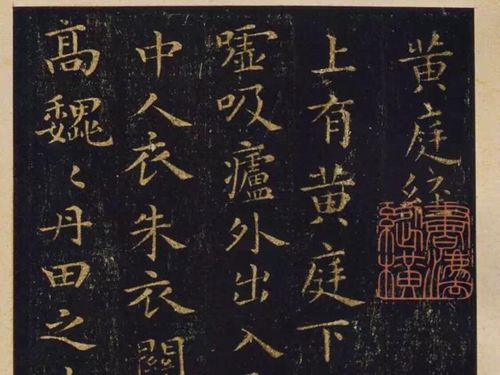 黄庭經
上有黄庭下
嘘吸廬外出入
中人衣朱衣關
髙巍〻丹田之